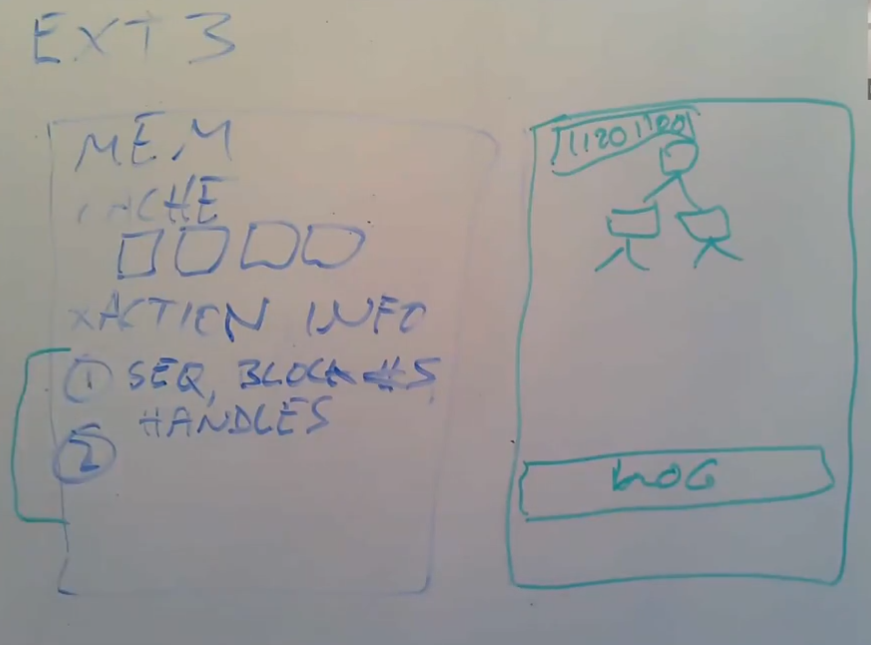 EXT 3
MEM
CACHE
XACTION INFO
① SEQ, BLOCK #S,
HANDLES
②
LOG